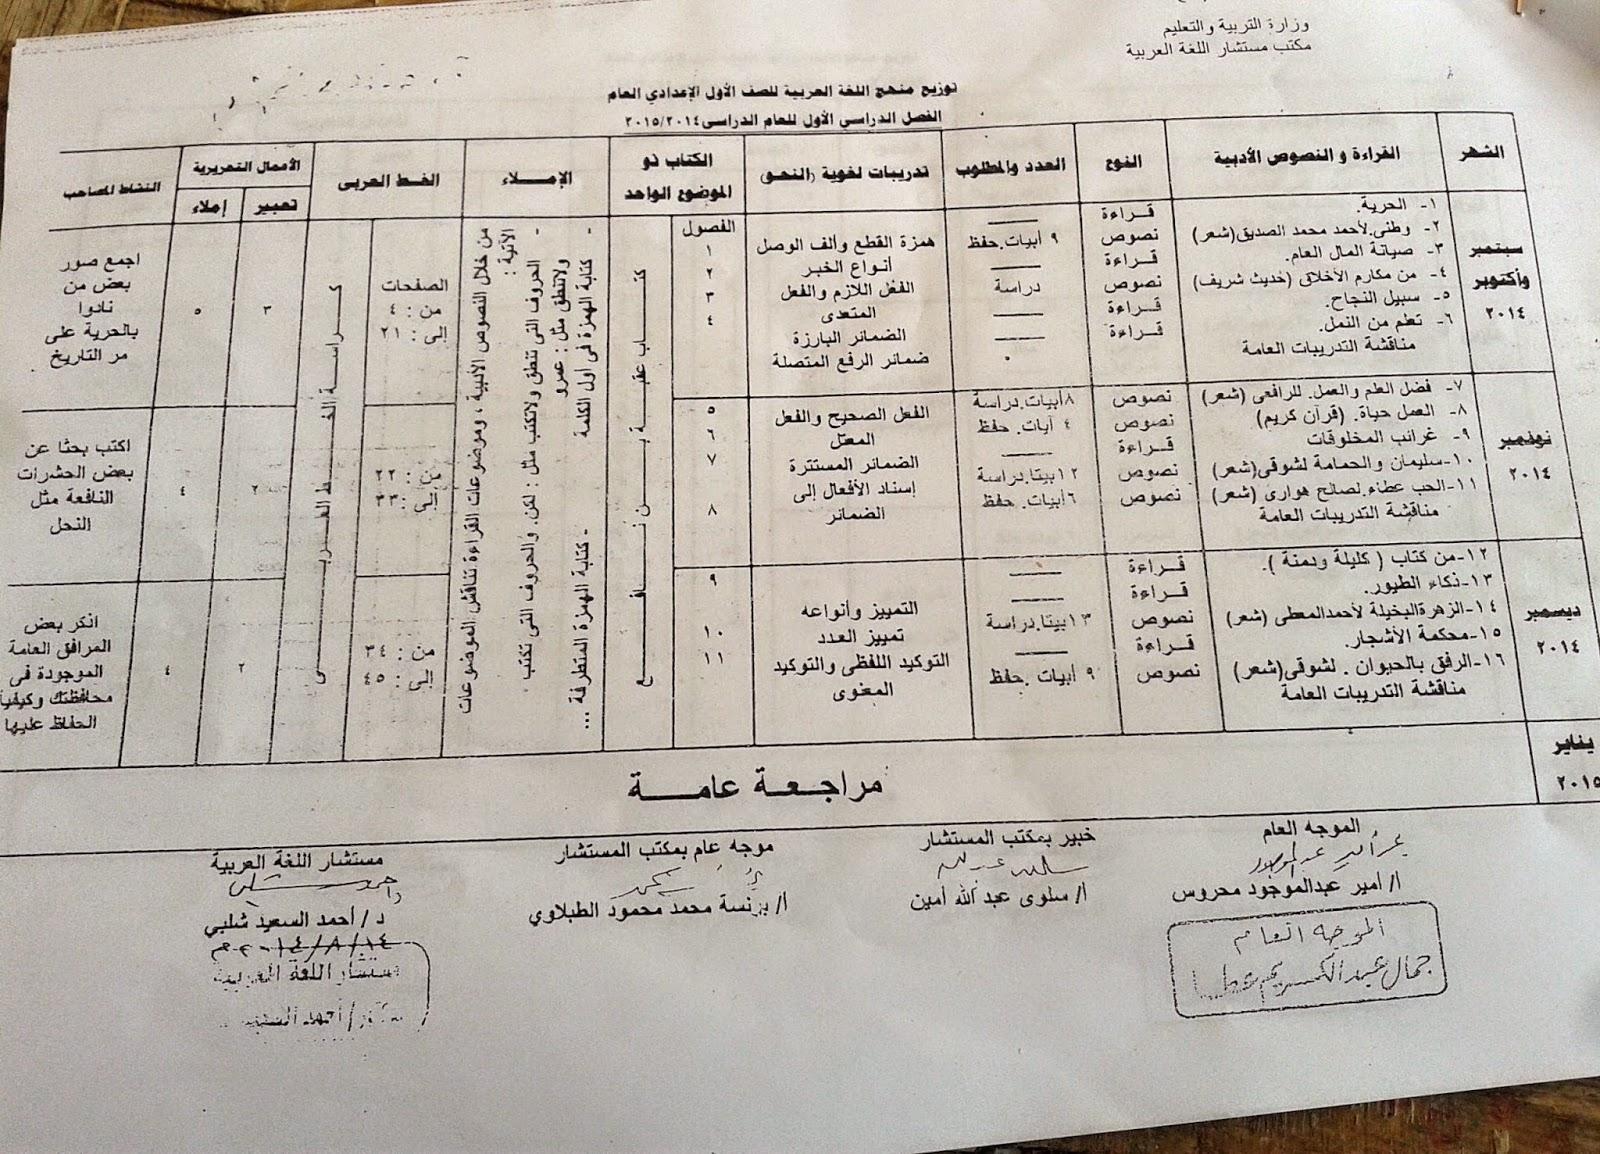 وزارة التربية والتعليم
مكتب مستشار اللغة العربية
توزيع منهج اللغة العربية للصف الأول الإعدادي العام
الفصل الدراسي الأول للعام الدراسى ٢٠١٥/٢٠١٤
الشهر
القراءة و النصوص الأدبية
النوع
العدد والمطلوب
تدريبات لغوية (النحو)
الكتاب ذو
الموضوع الواحد
الإمـــلاء
الخط العربى
الأعمال التحريرية
تعبير
إملاء
النشاط المصاحب
سبتمبر
وأكتوبر
٢٠١٤
١- الحرية.
٢- وطنى.لأحمد محمد الصديق(شعر)
٣- صيانة المال العام.
٤- من مكارم الأخلاق (حديث شريف)
٥- سبيل النجاح.
٦- تعلم من النمل.
مناقشة التدريبات العامة
قـراءة
نصوص
قـراءة
نصوص
قـراءة
قـراءة
٩ أبيات.حفظ
دراسة
همزة القطع وألف الوصل
أنواع الخبر
الفعل اللازم والفعل
المتعدى
الضمائر البارزة
ضمائر الرفع المتصلة
الفصول
١
٢
٣
٤
كتـــاب عقبـــة بـــن نـــافـــع
- كتابة الهمزة فى أول الكلمة
- كتابة الهمزة المتطرفة ...
ولاتنطق مثل : عمرو
- الحروف التى تنطق ولاتكتب مثل : لكن. والحروف التى تكتب
الآتية :
من خلال النصوص الأدبية ، وموضوعات القراءة تناقش الموضوعات
الصفحات
من : ٤
إلى: ٢١
كـــراســـة الخـــط العـــربـــى
٣
٥
اجمع صور
بعض من
نادوا
بالحرية على
مر التاريخ
نوفمبر
٢٠١٤
٧- فضل العلم والعمل. للرافعى (شعر)
٨- العمل حياة. (قرآن كريم)
٩- غرائب المخلوقات
١٠-سليمان والحمامة لشوقى(شعر)
١١-الحب عطاء.لصالح هوارى (شعر)
مناقشة التدريبات العامة
نصوص
نصوص
قـراءة
نصوص
نصوص
٨أبيات.دراسة
٤ آيات. حفظ
١٢بيتا.دراسة
٦أبيات. حفظ
الفعل الصحيح والفعل
المعتل
الضمائر المستترة
إسناد الأفعال إلى
الضمائر
٥
٦
٧
٨
من: ٢٢
إلى: ٣٣
٢
٤
اكتب بحثا عن
بعض الحشرات
النافعة مثل
النحل
ديسمبر
٢٠١٤
١٢-من كتاب ( كليلة ودمنة ).
١٣-ذكاء الطيور.
١٤-الزهرةالبخيلة لأحمدالمعطى (شعر)
١٥-محكمة الأشجار.
١٦-الرفق بالحيوان . لشوقى(شعر)
مناقشة التدريبات العامة
قـراءة
قـراءة
نصوص
قـراءة
نصوص
١٣بيتا.دراسة
٩ أبيات .حفظ
التمييز وأنواعه
تمييز العدد
التوكيد اللفظى والتوكيد
المعنوى
٩
١٠
١١
من : ٣٤
إلى: ٤٥
٢
٤
اذكر بعض
المرافق العامة
الموجودة فى
محافظتك وكيفية
الحفاظ عليها
يناير
٢٠١٥
مراجـعـة عامـــة
الموجه العام
أ/ أمير عبدالموجود محروس
خبير بمكتب المستشار
أ/ سلوى عبد الله أمين
موجه عام بمكتب المستشار
أ/ برنسة محمد محمود الطبلاوي
مستشار اللغة العربية
د / أحمد السعيد شلبي
٢٠١٤/٨/١٤م
الموجه العام
جمال عبد الكريم
مستشار اللغة العربية